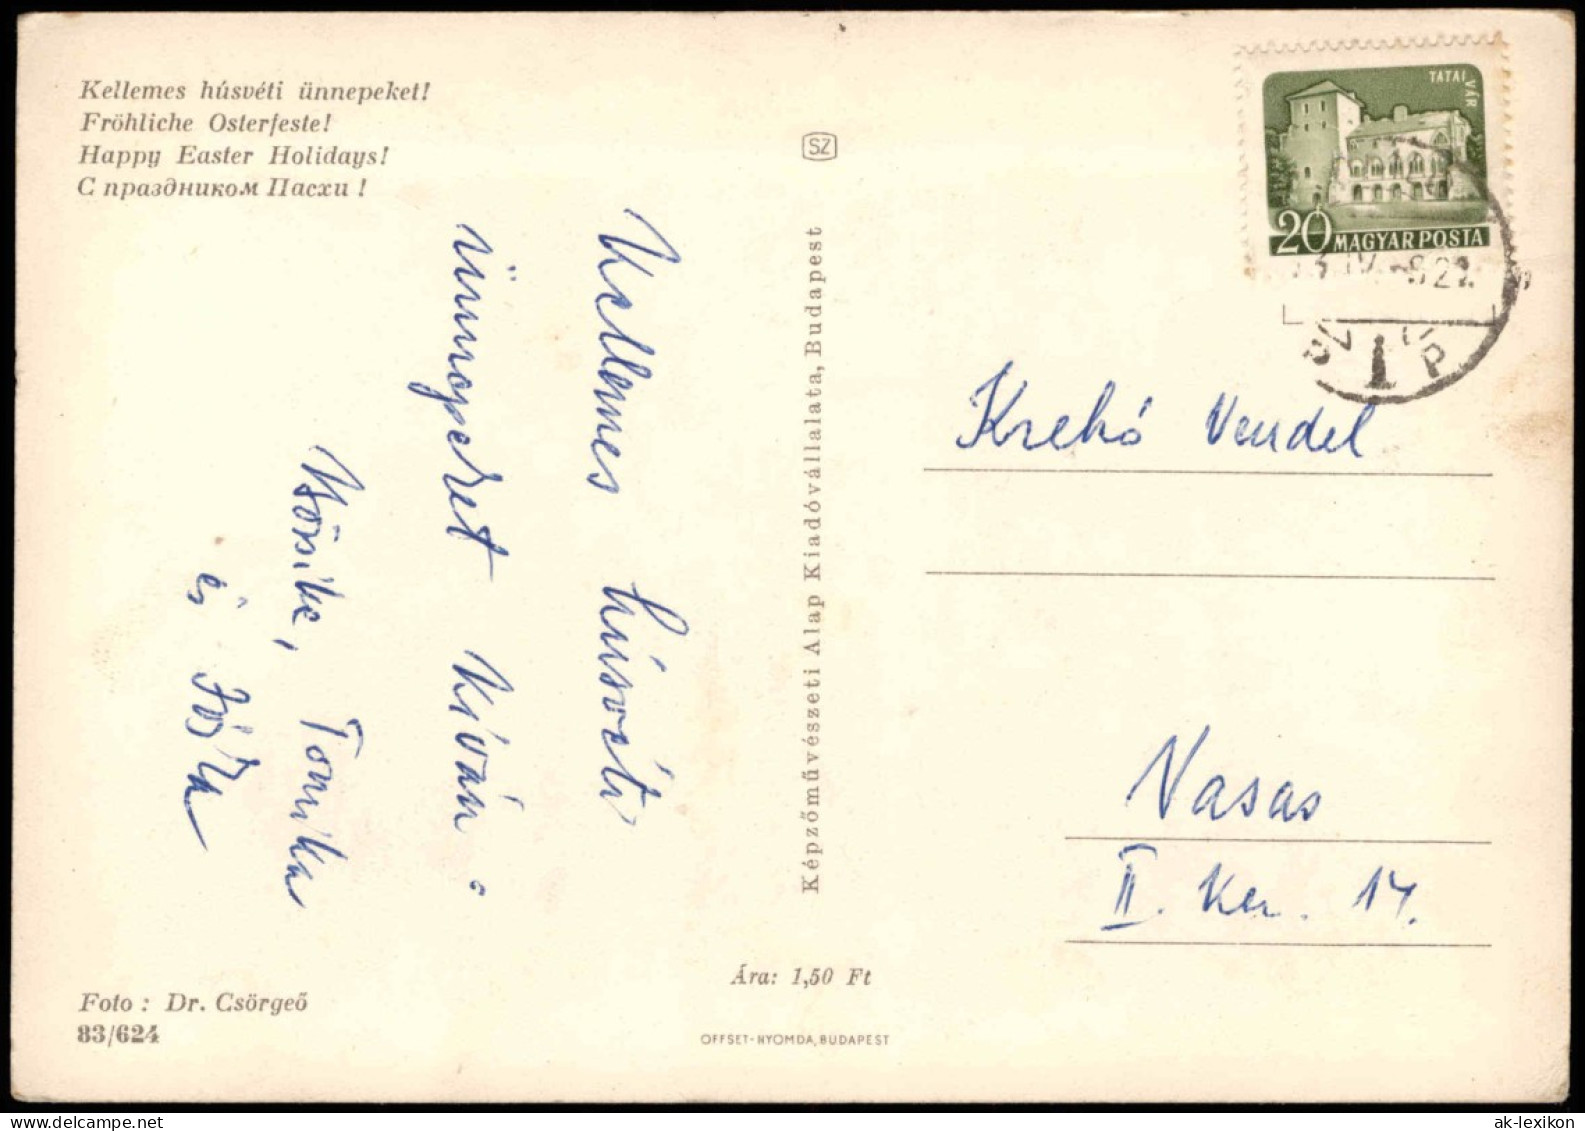 Kellemes húsvéti ünnepeket!
Fröhliche Osterfeste!
Happy Easter Holidays!
С праздником Пасхи !
Kellemes húsvéti
ünnepeket kíván
Tomika
és Jóska
Foto : Dr. Csörgeő
83/624
SZ
Képzőművészeti Alap Kiadóvállalata, Budapest
Ára: 1,50 Ft
OFFSET-NYOMDA, BUDAPEST
TATAI VÁR
20 MAGYAR POSTA
Krekó Vendel
Vasas
II. Ker. 14.
ak-lexikon